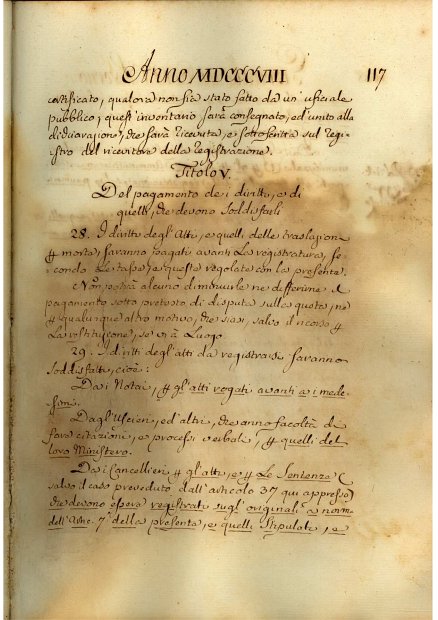 Anno MDCCCVIII 117
certificato, qualora non sia stato fatto da un' uficiale
pubblico; quest' inventario sarà consegnato, ed unito alla
dichiarazione, che sarà ricevuta, e sottoscritta sul Regi-
stro del ricevitore della Registrazione.
Titolo V.
Del pagamento dei diritti, e di
quelli, che devono soddisfarli
28. I diritti degl' Atti, e quelli delle traslazioni
morte, saranno pagati avanti la registratura, se-
condo le tasse, e queste regolate con la presente.
Non potrà alcuno diminuirle ne differirne il
pagamento sotto pretesto di disputa sulla quota, ne
qualunque altro motivo, che siasi, salvo il ricorso
la restituzione, se vi à Luogo
29. I diritti degl' atti da registrarsi saranno
soddisfatti, cioè:
Dai Notai, gl' atti rogati avanti a i mede-
simi.
Dagl' Uscieri, ed altri, che anno facoltà di
fare citazioni, e processi verbali, quelli del
loro Ministero.
Dai Cancellieri gl' atti, e le Sentenze (
salvo il caso preveduto dall' articolo 37 qui appresso)
che devono essere registrati sugl' originali a norma
dell' Artic. 7° della presente, e quelli stipulati, e